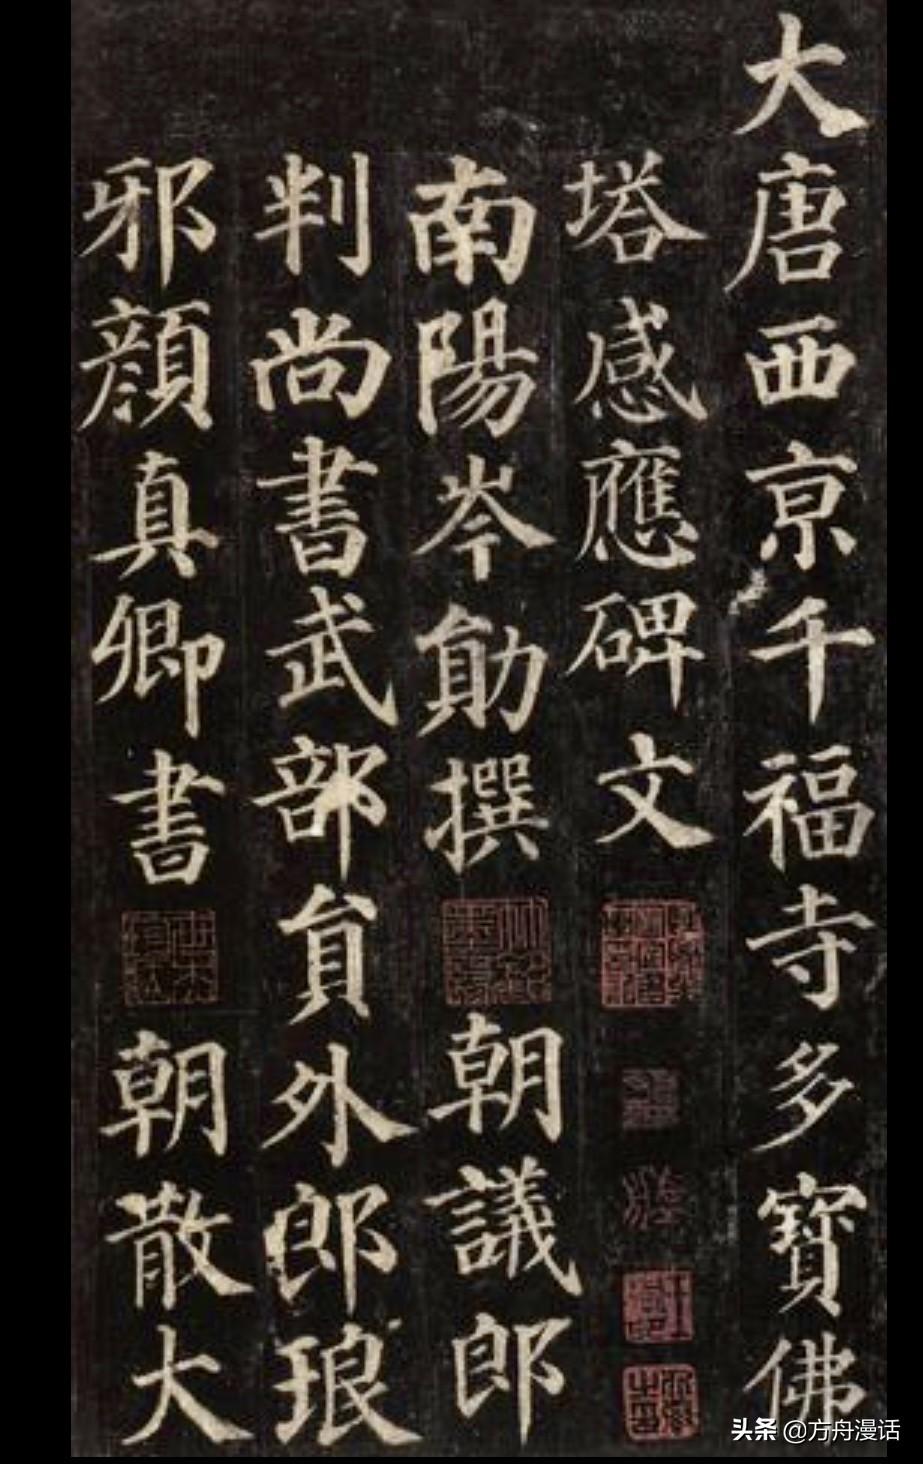 大唐西京千福寺多寶佛
塔感應碑文
南陽岑勛撰朝議郎
判尚書武部員外郎琅
邪顏真卿書朝散大
头条 @方舟漫话